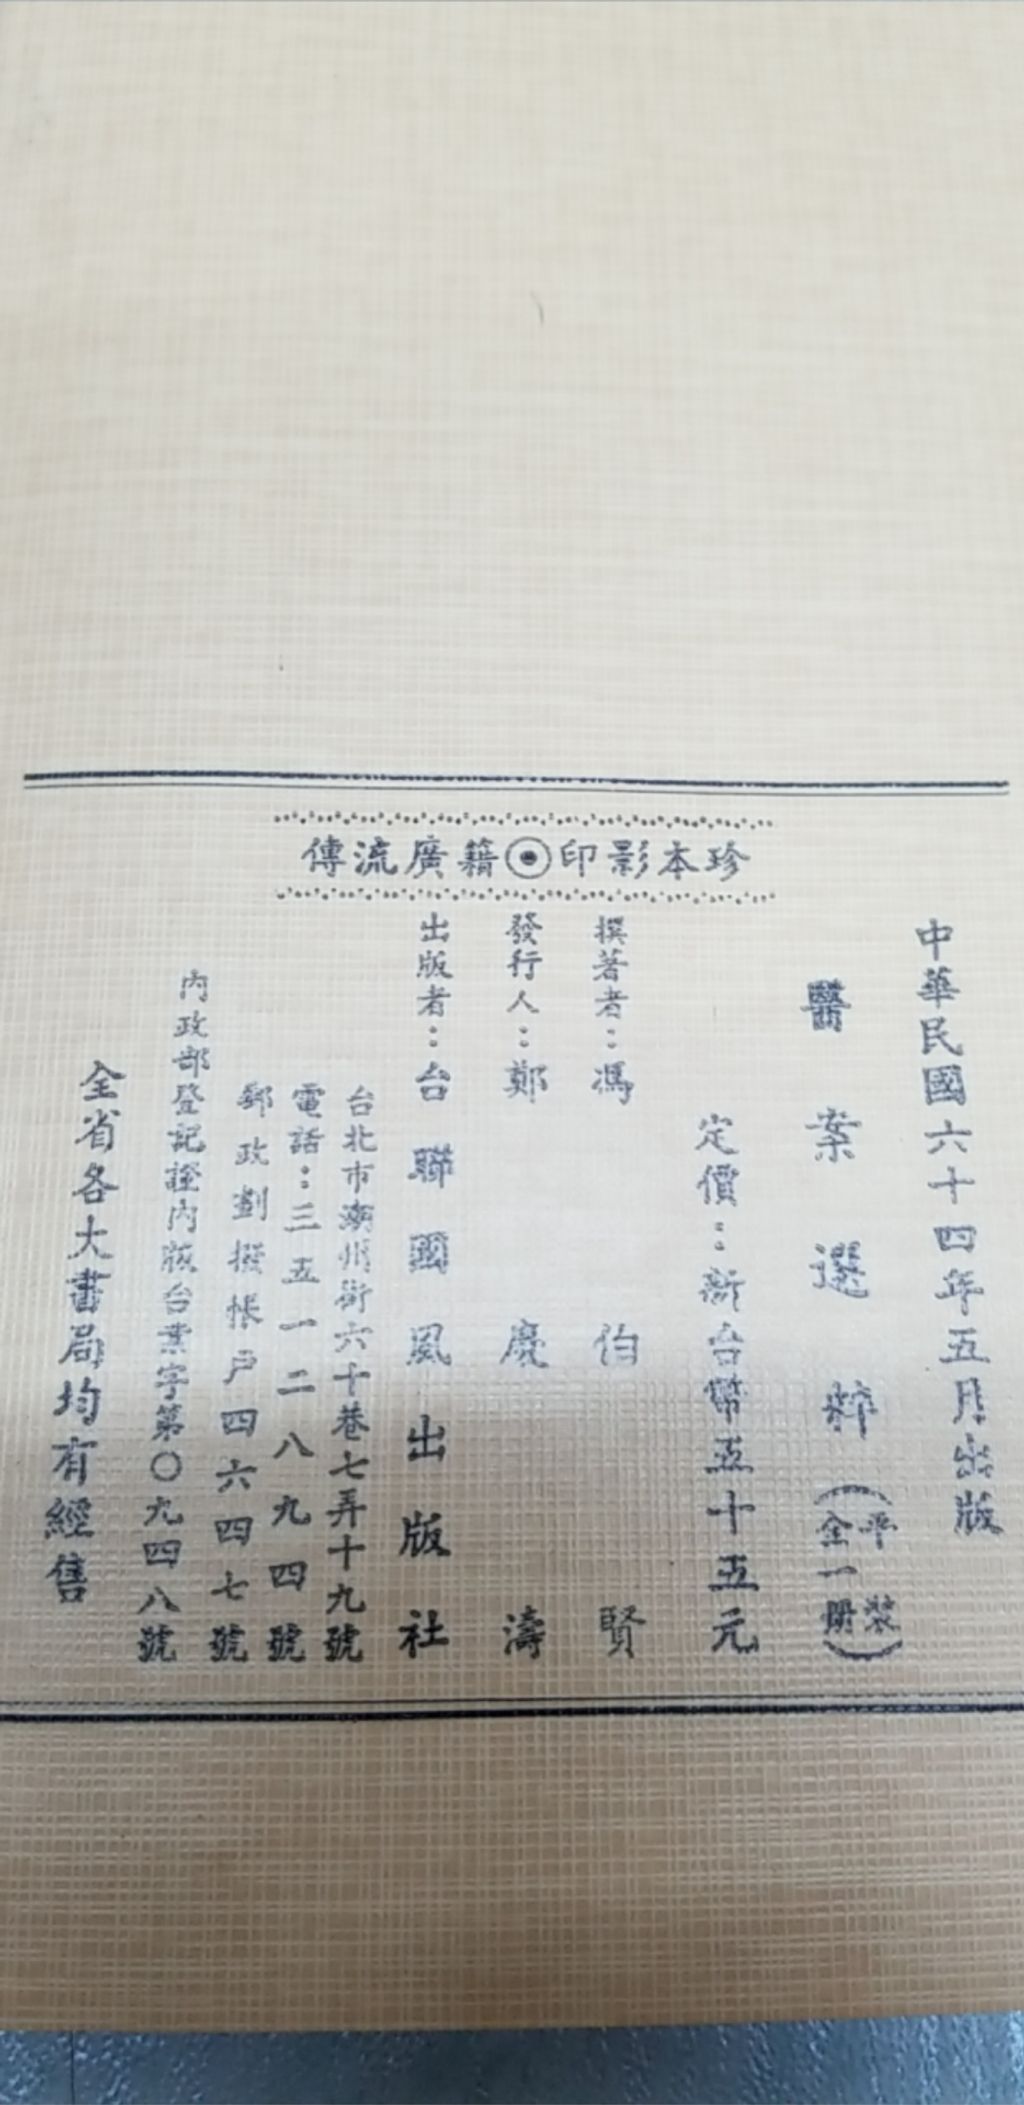 珍本影印⊙籍廣流傳
中華民國六十四年五月出版
醫案選粹（平裝全一冊）
定價：新台幣五十五元
撰著者：馮伯賢
發行人：鄭慶濤
出版者：台聯國風出版社
台北市潮州街六十巷七弄十九號
電話：三五一二八九四號
郵政劃撥帳戶四六四七號
內政部登記證內版台業字第〇九四八號
全省各大書局均有經售